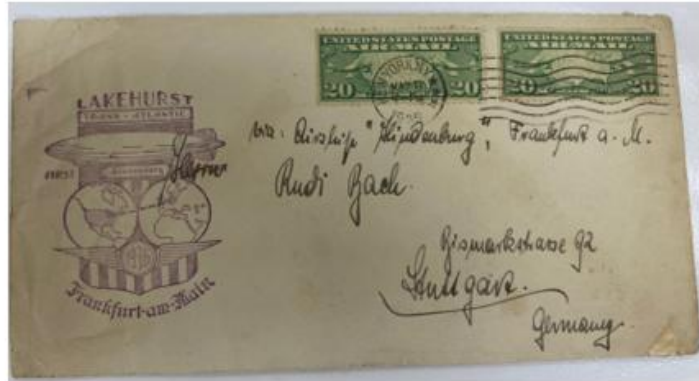 UNITED STATES POSTAGE
AIR MAIL
20 20
UNITED STATES POSTAGE
AIR MAIL
20 20
NEW YORK, N.Y.
MAY
LAKEHURST
TRANS-ATLANTIC
FIRST
Hindenburg
1936
Frankfurt-am-Main
via: Airship "Hindenburg", Frankfurt a. M.
Herrn
Rudi Bach.
Bismarkstrasse 92
Stuttgart.
Germany.